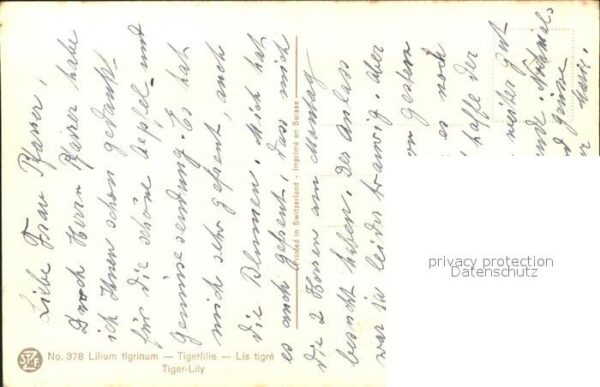 Liebe Frau Pfarrer,
Durch Herrn Pfarrer habe
ich Ihnen schon gedankt
für die schöne Aepfel- und
Gemüsesendung. Es hat
mich sehr gefreut, auch
die Blumen. Mich hat
es auch gefreut, dass mich
die 2 Herren am Montag
besucht haben. Der Anlass
war ja leider traurig. Aber
gestern
es noch
hoffe der
weiter gut
und grüsse
No. 378 Lilium tigrinum — Tigerlilie — Lis tigré
Tiger-Lily
Printed in Switzerland - Imprimé en Suisse
privacy protection
Datenschutz